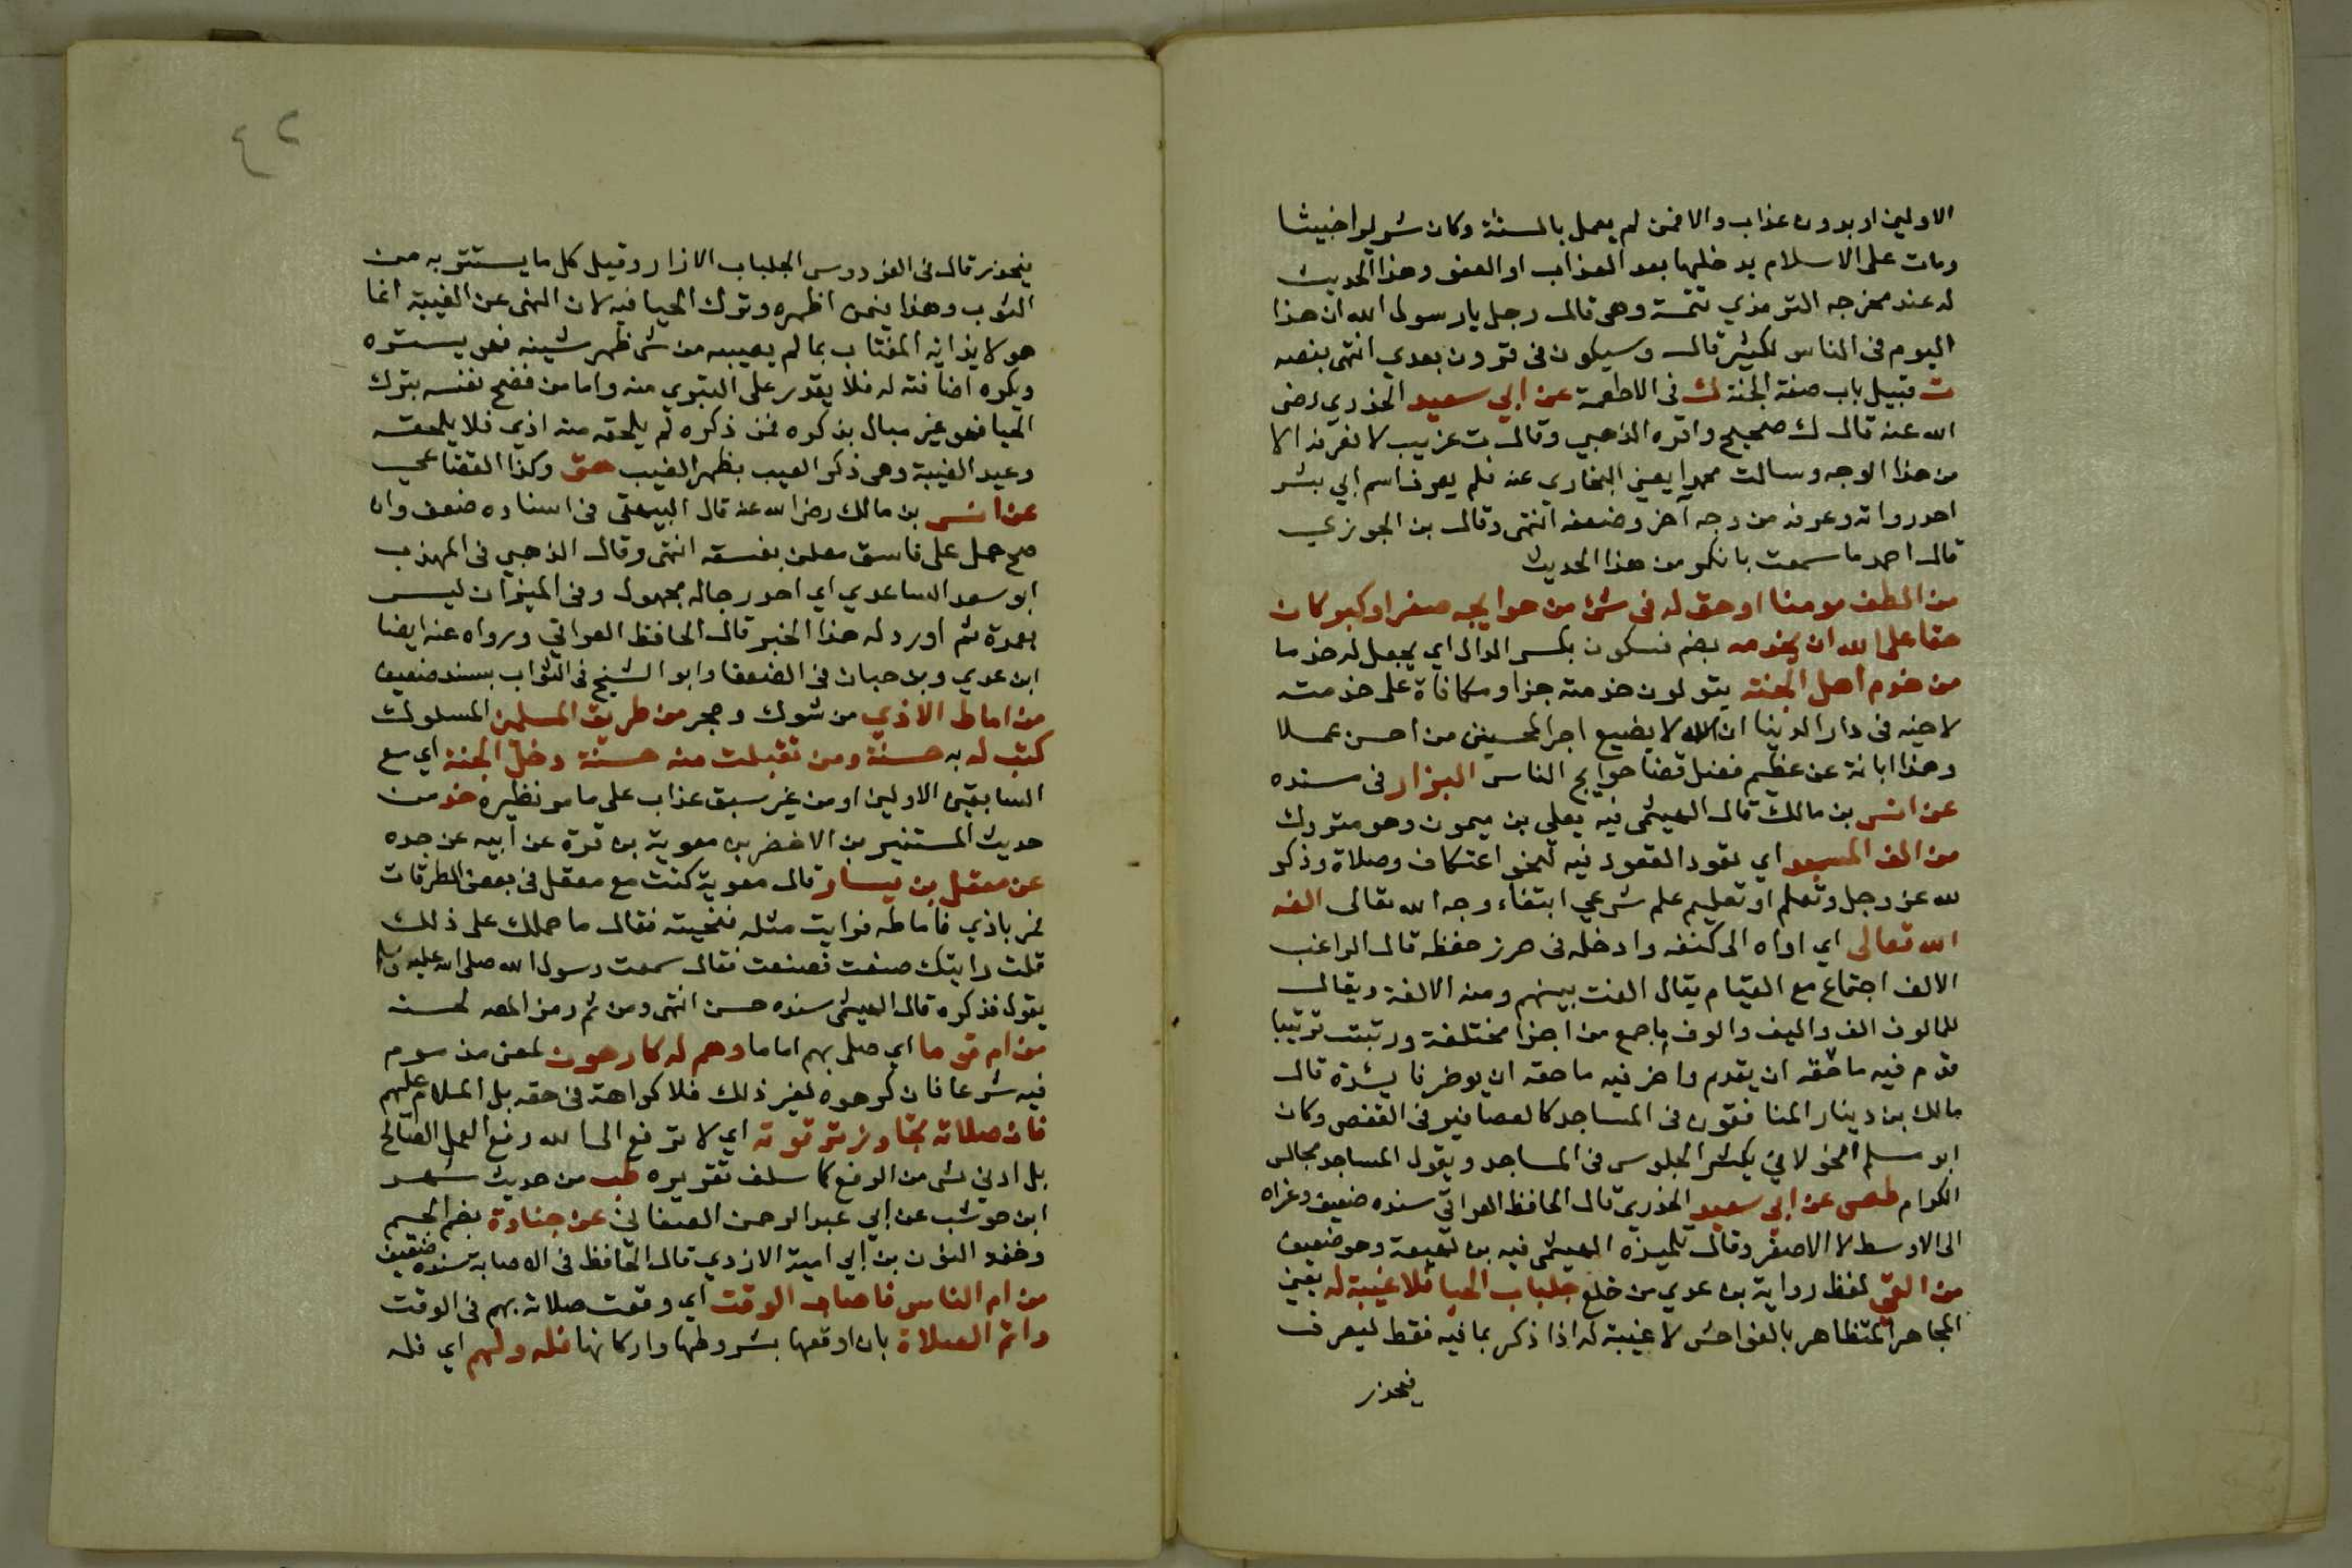 الاولين او بدون عذاب والا فمن لم يعمل بالسنة وكان شريرا خبيثا
ومات على الاسلام يدخلها بعد العذاب او العفو وهذا الحديث
له عند مخرجه الترمذي تتمة وهي قال رجل يا رسول الله ان هذا
اليوم في الناس لكثير قال وسيكون في قرون بعدي انتهى بنصه
ت قبيل باب صفة الجنة ك في الاطعمة عن ابي سعيد الخدري رضي
الله عنه قال ك صحيح واقره الذهبي وقال ت غريب لا نعرفه الا
من هذا الوجه وسالت محمدا يعني البخاري عنه فلم يعرف اسم ابي بشر
احد رواته وعرفه من وجه آخر وضعفه انتهى وقال بن الجوزي
قال احمد ما سمعت بانكر من هذا الحديث
من الطف مومنا او حق له في شئ من حوايجه صغر او كبر كان
حقا على الله ان يخدمه بضم فسكون بكسر الدال اي يجعل له خدما
من خدم اهل الجنة يتولون خدمته جزا ومكافاة على خدمته
لاخيه في دار الدنيا ان الله لا يضيع اجر المحسنين من احسن عملا
وهذا ابانة عن عظيم فضل قضا حوايج الناس البزار في مسنده
عن انس بن مالك قال الهيثمي فيه يعلى بن ميمون وهو متروك
من الف المسجد اي تعود القعود فيه لنحو اعتكاف وصلاة وذكر
لله عز وجل وتعلم او تعليم علم شرعي ابتغاء وجه الله تعالى الفه
الله تعالى اي اواه الى كنفه وادخله في حرز حفظه قال الراغب
الالف اجتماع مع التيام يقال الفت بينهم ومنه الالفة ويقال
للمالوف الف واليف والوف ما جمع من اجزا مختلفة ورتبت ترتيبا
قدم فيه ما حقه ان يقدم واخر فيه ما حقه ان يوخر فايدة قال
مالك بن دينار المنافقون في المساجد كالعصافير في القفص وكان
ابو مسلم الخولاني يكثر الجلوس في المساجد ويقول المساجد مجالس
الكرام طص عن ابي سعيد الخدري قال الحافظ العراقي سنده ضعيف وعزاه
الى الاوسط لا الاصغر وقال تلميذه الهيثمي فيه بن لهيعة وهو ضعيف
من القى لفظ رواية بن عدي من خلع جلباب الحيا فلا غيبة له يعني
المجاهر المتظاهر بالفواحش لا غيبة له اذا ذكر بما فيه فقط ليعرف
فيحذر
٤٢
فيحذر قال في الفردوس الجلباب الازار وقيل كل ما يستتر به من
الثوب وهذا فيمن اظهره وترك الحيا فيه لان النهي عن الغيبة انما
هو لايذايه المغتاب بما لم يعيبه من شئ ظهر شينه فهو يستره
ويكره اضافته له فلا يقدر على التبري منه واما من فضح نفسه بترك
الحيا فهو غير مبال بذكره فمن ذكره لم يلحقه منه اذي فلا يلحقه
وعيد الغيبة وهي ذكر العيب بظهر الغيب هق وكذا القضاعي
عن انس بن مالك رضي الله عنه قال البيهقي في اسناده ضعف وان
صح حمل على فاسق معلن بفسقه انتهى وقال الذهبي في المهذب
ابو سعد الساعدي اي احد رجاله مجهول وفي الميزان ليس
بعمدة ثم اورد له هذا الخبر قال الحافظ العراقي ورواه عنه ايضا
ابن عدي وبن حبان في الضعفا وابو الشيخ في الثواب بسند ضعيف
من اماط الاذي من شوك وحجر من طريق المسلمين المسلوك
كتب له به حسنة ومن تقبلت منه حسنة دخل الجنة اي مع
السابقين الاولين او من غير سبق عذاب على ما مر نظيره خد من
حديث المستنير بن الاخضر بن معوية بن قرة عن ابيه عن جده
عن معقل بن يسار قال معوية كنت مع معقل في بعض الطرقات
فمر باذي فاماطه فرايت مثله فنحيته فقال ما حملك على ذلك
قلت رايتك صنعت فصنعت فقال سمعت رسول الله صلى الله عليه وسلم
يقول فذكره قال الهيثمي سنده حسن انتهى ومن ثم رمز المص لحسنه
من ام قوما اي صلى بهم اماما وهم له كارهون لمعنى مذموم
فيه شرعا فان كرهوه لغير ذلك فلا كراهة في حقه بل الملام عليهم
فان صلاته تجاوز ترقوته اي لا ترفع الى الله رفع العمل الصالح
بل ادني شئ من الرفع كما سلف تقريره طب من حديث شهر
ابن حوشب عن ابي عبد الرحمن الصنعاني عن جنادة بضم الجيم
وخفة النون بن ابي امية الازدي قال الحافظ في الاصابة سنده ضعيف
من ام الناس فاصاب الوقت اي وقعت صلاته بهم في الوقت
واتم الصلاة بان اوقعها بشروطها واركانها فله ولهم اي فله